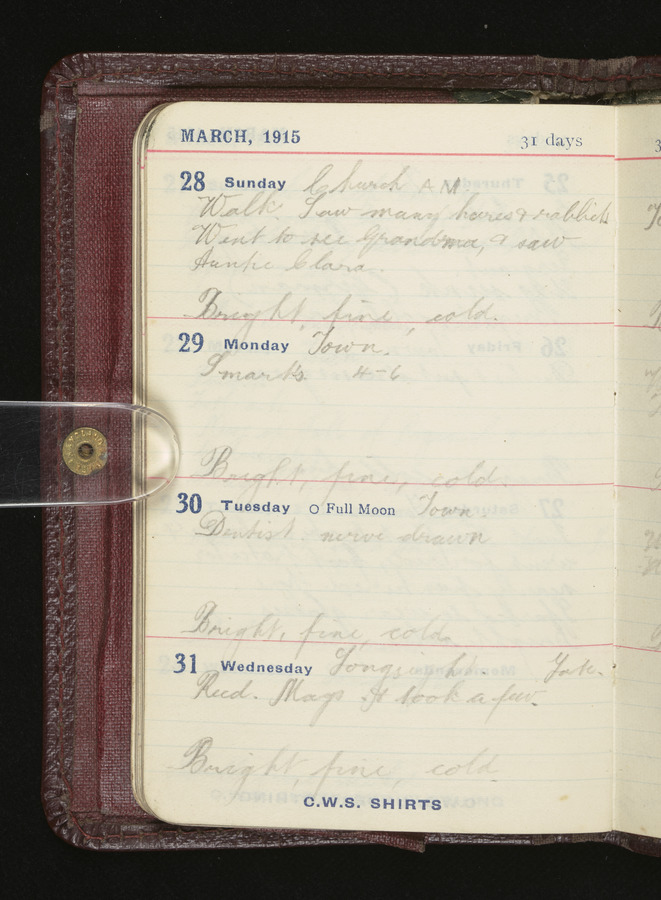 MARCH, 1915 31 days
28 Sunday Church A M.
Walk. Saw many hares & rabbits
Went to see Grandma, & saw
Auntie Clara.
Bright, fine, cold.
29 Monday Town.
Smarts 4-6
Bright, fine, cold.
30 Tuesday Full Moon Town
Dentist nerve drawn
Bright, fine, cold.
31 Wednesday
Recd. Mags took a few.
Bright, fine, cold.
C.W.S. SHIRTS